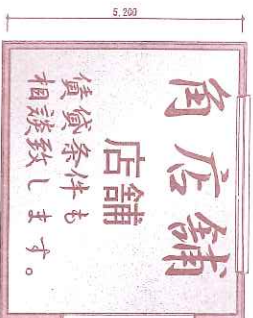 5,200
角店舗
店舗
賃貸条件も
相談致します。